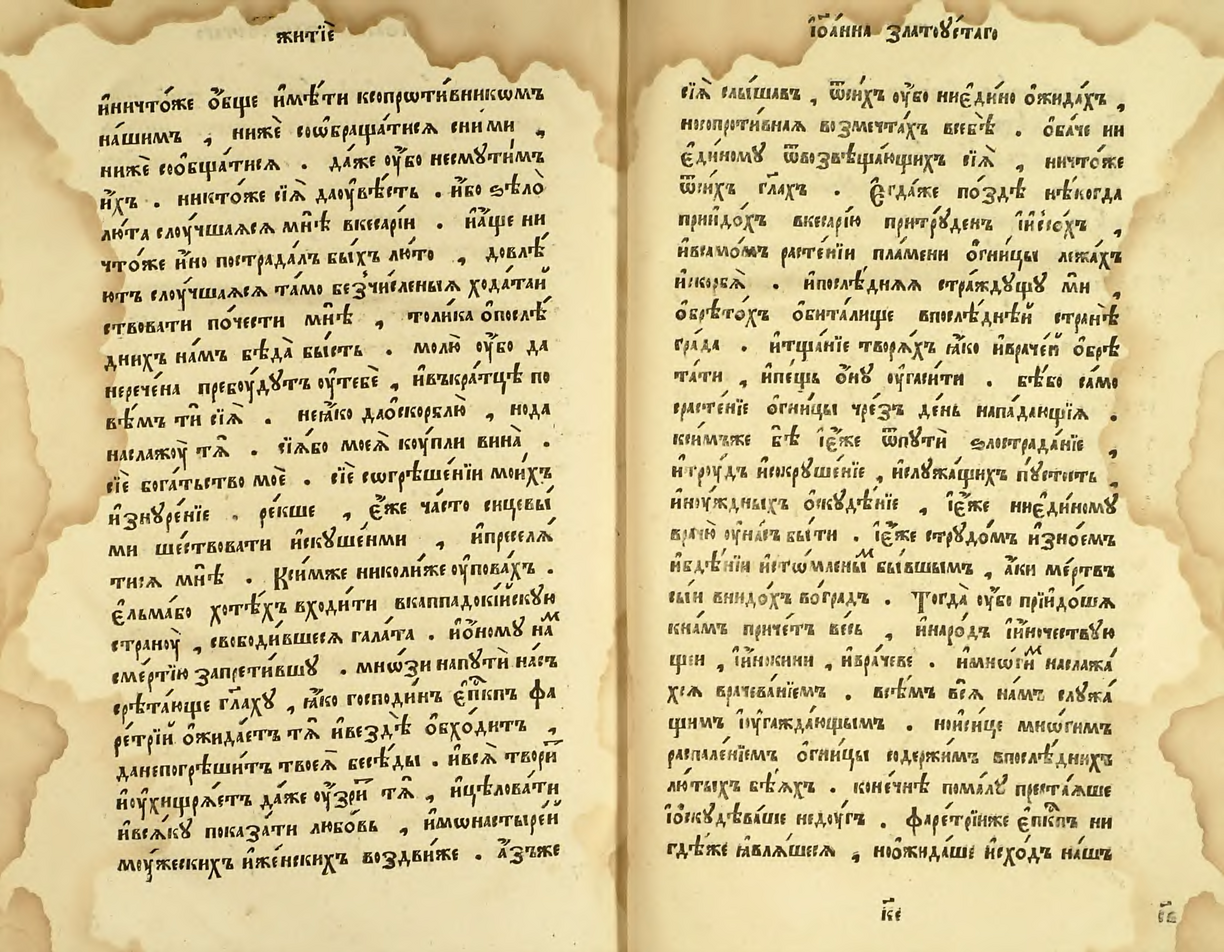 житїѐ
и҆ничто́же ѻ҆́бще и҆мѣ́ти ксопрѡти́вникѡмъ
на́шимъ , нижѐ соѡбраща́тисѧ сни́ми ,
нижѐ сооб̾ща́тисѧ . да́же ᲂу҆́бо несмути́мъ
и҆́хъ . никто́же сїѧ̀ даᲂу҆вѣ́сть . и҆́бо ѕѣлѡ̀
лю́та слоу́чшаѧсѧ мнѣ̀ вкесарі́и . и҆а҆́ще ни
что́же и҆́но пострада́лъ бы́хъ лю́то , довлѣ́
ютъ слоу́чшаѧсѧ та́мо без̾чи́сленыѧ хода́таи
ствовати по́чести мнѣ̀ , толи́ка ѻ҆послѣ́
днихъ на́мъ бѣда̀ бы́сть . молю̀ ᲂу҆́бо да
нерече́на пребоу́дутъ ᲂу҆тебѐ , и҆въкра́тцѣ по
вѣ́мъ ти сїѧ̀ . неꙗ҆́ко даѻ҆скорблю̀ , нода
наслажоу̀ тѧ̀ . сїѧ́бо моеѧ̀ коу́пли вина̀ .
сїѐ бога́тьство моѐ . сїѐ сѡгрѣше́нїи мои́хъ
и҆знꙋре́нїе . ре́кше , є҆́же ча́сто сицевы́
ми ше́ствовати и҆скуше́нми , и҆преселѧ́
тисѧ мнѣ̀ . Ксимже николи́же ᲂу҆пова́хъ .
є҆льма́бо хотѣ́хъ входи́ти вкаппадокі́йскую
страноу̀ , свободи́вшесѧ гала́та . и҆ѻ҆́ному наⷨ
сме́ртїю запрети́вшꙋ . мнѡ́зи напути́ на́съ
срѣта́юще гл҃ахꙋ , ꙗ҆́ко господи́нъ є҆пⷭ҇кпъ фа
ре́трїй ѻ҆жида́етъ тѧ̀ и҆вездѣ̀ ѻ҆бхо́дитъ ,
данепогрѣши́тъ твоеѧ̀ бесѣ́ды . и҆всѧ̀ твори́ⷮ
и҆ᲂу҆хищрѧ́етъ да́же ᲂу҆́зриⷮ тѧ̀ , и҆цѣлова́ти
и҆всѧ́кꙋ показа́ти любо́вь , и҆мѡнастыре́й
моу́жескихъ и҆же́нскихъ воздви́же . а҆́зъже
і҆ѡа҆́нна златоꙋ́стаго
сїѧ̀ слы́шавъ , ѿси́хъ ᲂу҆́бо ниєди́но ѻ҆жида́хъ ,
носопроти́внаѧ возмечта́хъ всебѣ̀ . ѻ҆ба́че ни
є҆ди́ному ѿвозвѣща́ющихъ сїѧ̀ , ничто́же
ѿси́хъ гл҃ахъ . Є҆гда́же по́здѣ нѣ́когда
прїидо́хъ вкесарі́ю притрꙋ́денъ і҆и҆со́хъ ,
и҆всамо́мъ расте́нїи пла́мени ѻ҆гни́цы лежа́хъ
и҆скорбѧ̀ . и҆послѣ́днѧѧ стра́ждꙋщꙋ ми̑ ,
ѻ҆брѣто́хъ ѻ҆бита́лище впослѣ́дней странѣ̀
гра́да . и҆тща́нїе творѧ́хъ ꙗ҆́ко и҆враче́й ѻ҆брѣ
та́ти , и҆пе́щь ѻ҆́нꙋ ᲂу҆гаси́ти . бѣ́бо са́мо
срасте́нїе ѻ҆гни́цы чре́зъ де́нь напа́дающїѧ .
ксимъже бѣ̀ і҆є҆́же ѿпути̑ ѕлострада́нїе ,
и҆трꙋ́дъ и҆сокруше́нїе , и҆служа́щихъ пꙋ́стость ,
и҆ноу́ждныхъ ѻ҆скꙋдѣ́нїе , і҆є҆́же ниєди́номꙋ
врачю̀ ᲂу҆на́съ бы́ти . і҆є҆́же струдо́мъ и҆зно́емъ
и҆бдѣ́нїи и҆стѡмле́ныⷨ бы́вшымъ , а҆́ки ме́ртвъ
сы́и внидо́хъ во́градъ . Тогда̀ ᲂу҆́бо прїидо́шѧ
кна́мъ приче́тъ весь , и҆наро́дъ і҆и҆ночествую
щеи , і҆и҆но́кини , и҆враче́ве . и҆мнѡ́гиⷨ наслажа́
хсѧ врачева́нїемъ . всѣ́мъ всѧ̀ на́мъ слꙋжа́
щимъ і҆ᲂу҆гажда́ющымъ . нои҆си́це мнѡ́гимъ
распале́нїемъ ѻ҆гни́цы содержи́мъ впослѣ́днихъ
лю́тыхъ бѣ́ѧхъ . коне́чнѣ пома́лꙋ преста́ѧше
і҆ѻ҆скꙋдѣва́ше недꙋ́гъ . фаре́трїиже є҆пⷭ҇кпъ ни
гдѣ́же ꙗ҆влѧ́шесѧ , ноѻ҆жида́ше и҆схо́дъ на́шъ
к҃е